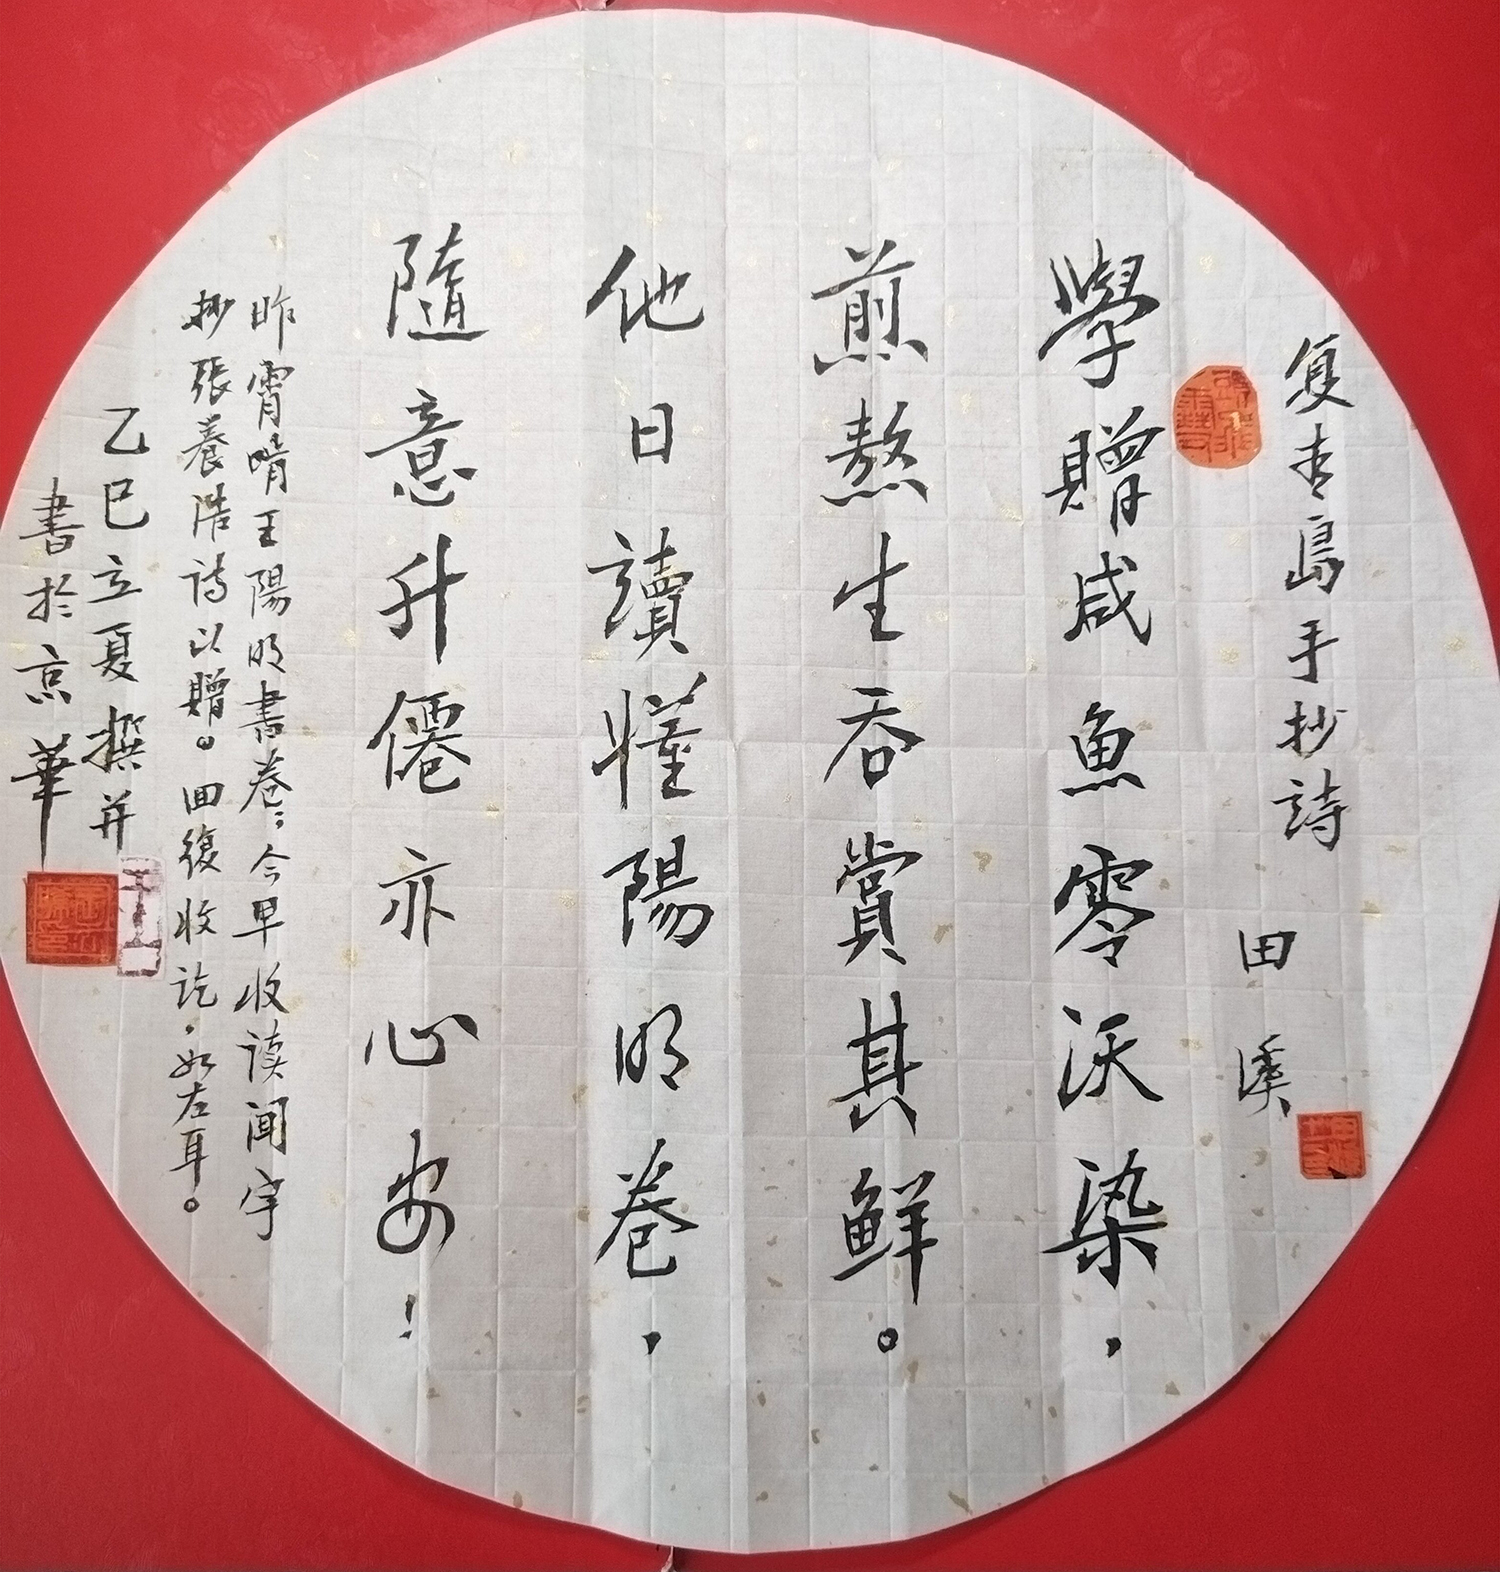 复青島手抄詩
田溪
學贈咸魚零沃染，
煎熬生吞賞其鮮。
他日讀懂陽明卷，
隨意升僊亦心安！
昨宵啃王陽明書卷；今早收读闻宇
抄張養浩诗以贈。回復收讫，如左耳。
乙巳立夏撰并
書於京華